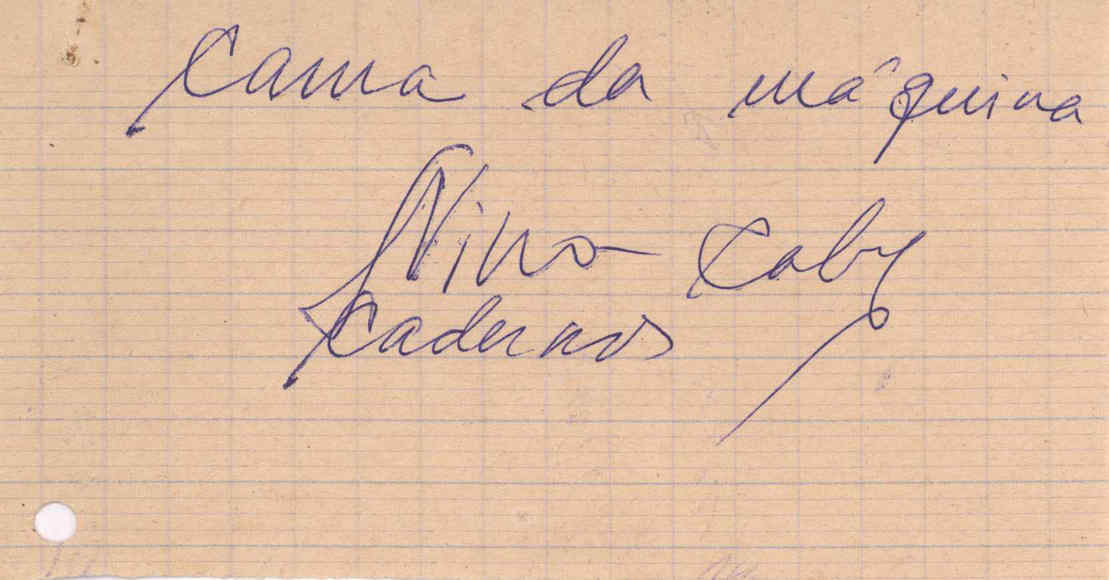 Cama da máquina
Nino Caby
Cadernos